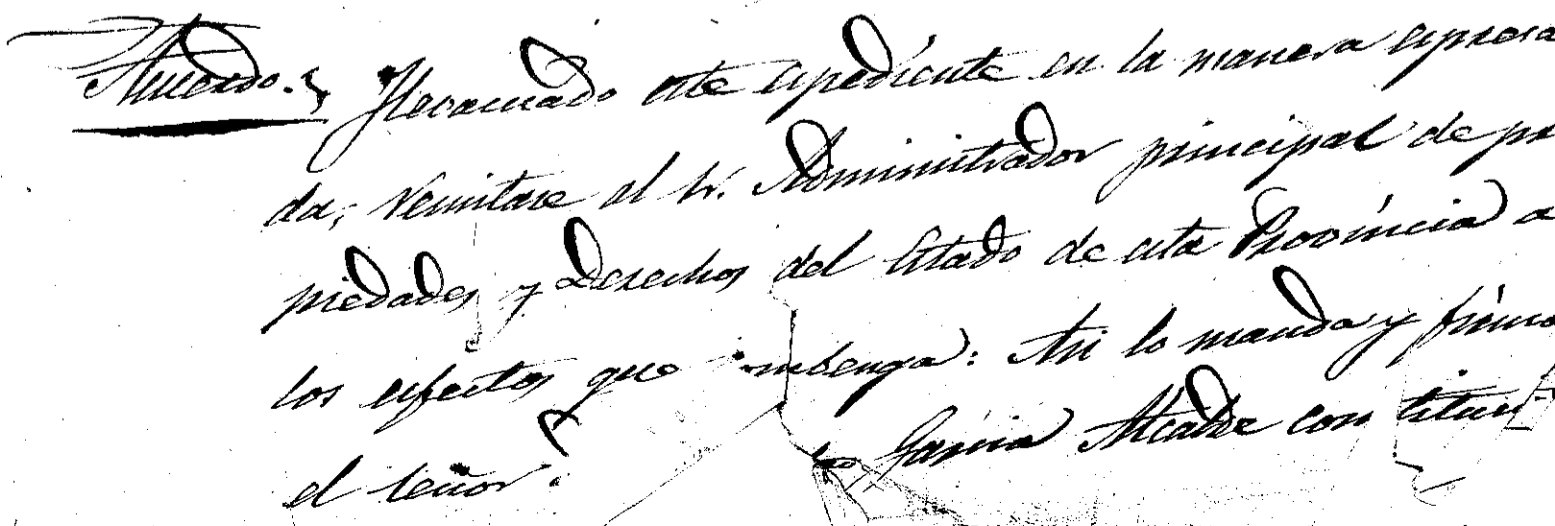 Acuerdo. Evacuado este espediente en la manera espresa
da, remitase al Sr. Administrador principal de pro
piedades y Derechos del Estado de esta Provincia a
los efectos que combenga: Asi lo manda y firma
el Señor Garcia Alcalde constitu